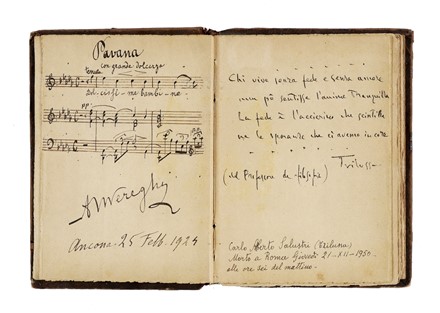 Pavana
con grande dolcezza
pp
Ancona - 25 Febb. 1924
Chi vive senza fede e senza amore
nun pò sentisse l'anima tranquilla
La fede è l'acciarino che scintilla
ne le speranze che ci avemo in core
Trilussa
(Ad Professore de filosofia)
Carlo Alberto Salustri (Trilussa)
Morto a Roma Giovedì 21-XII-1950
alle ore sei del mattino.